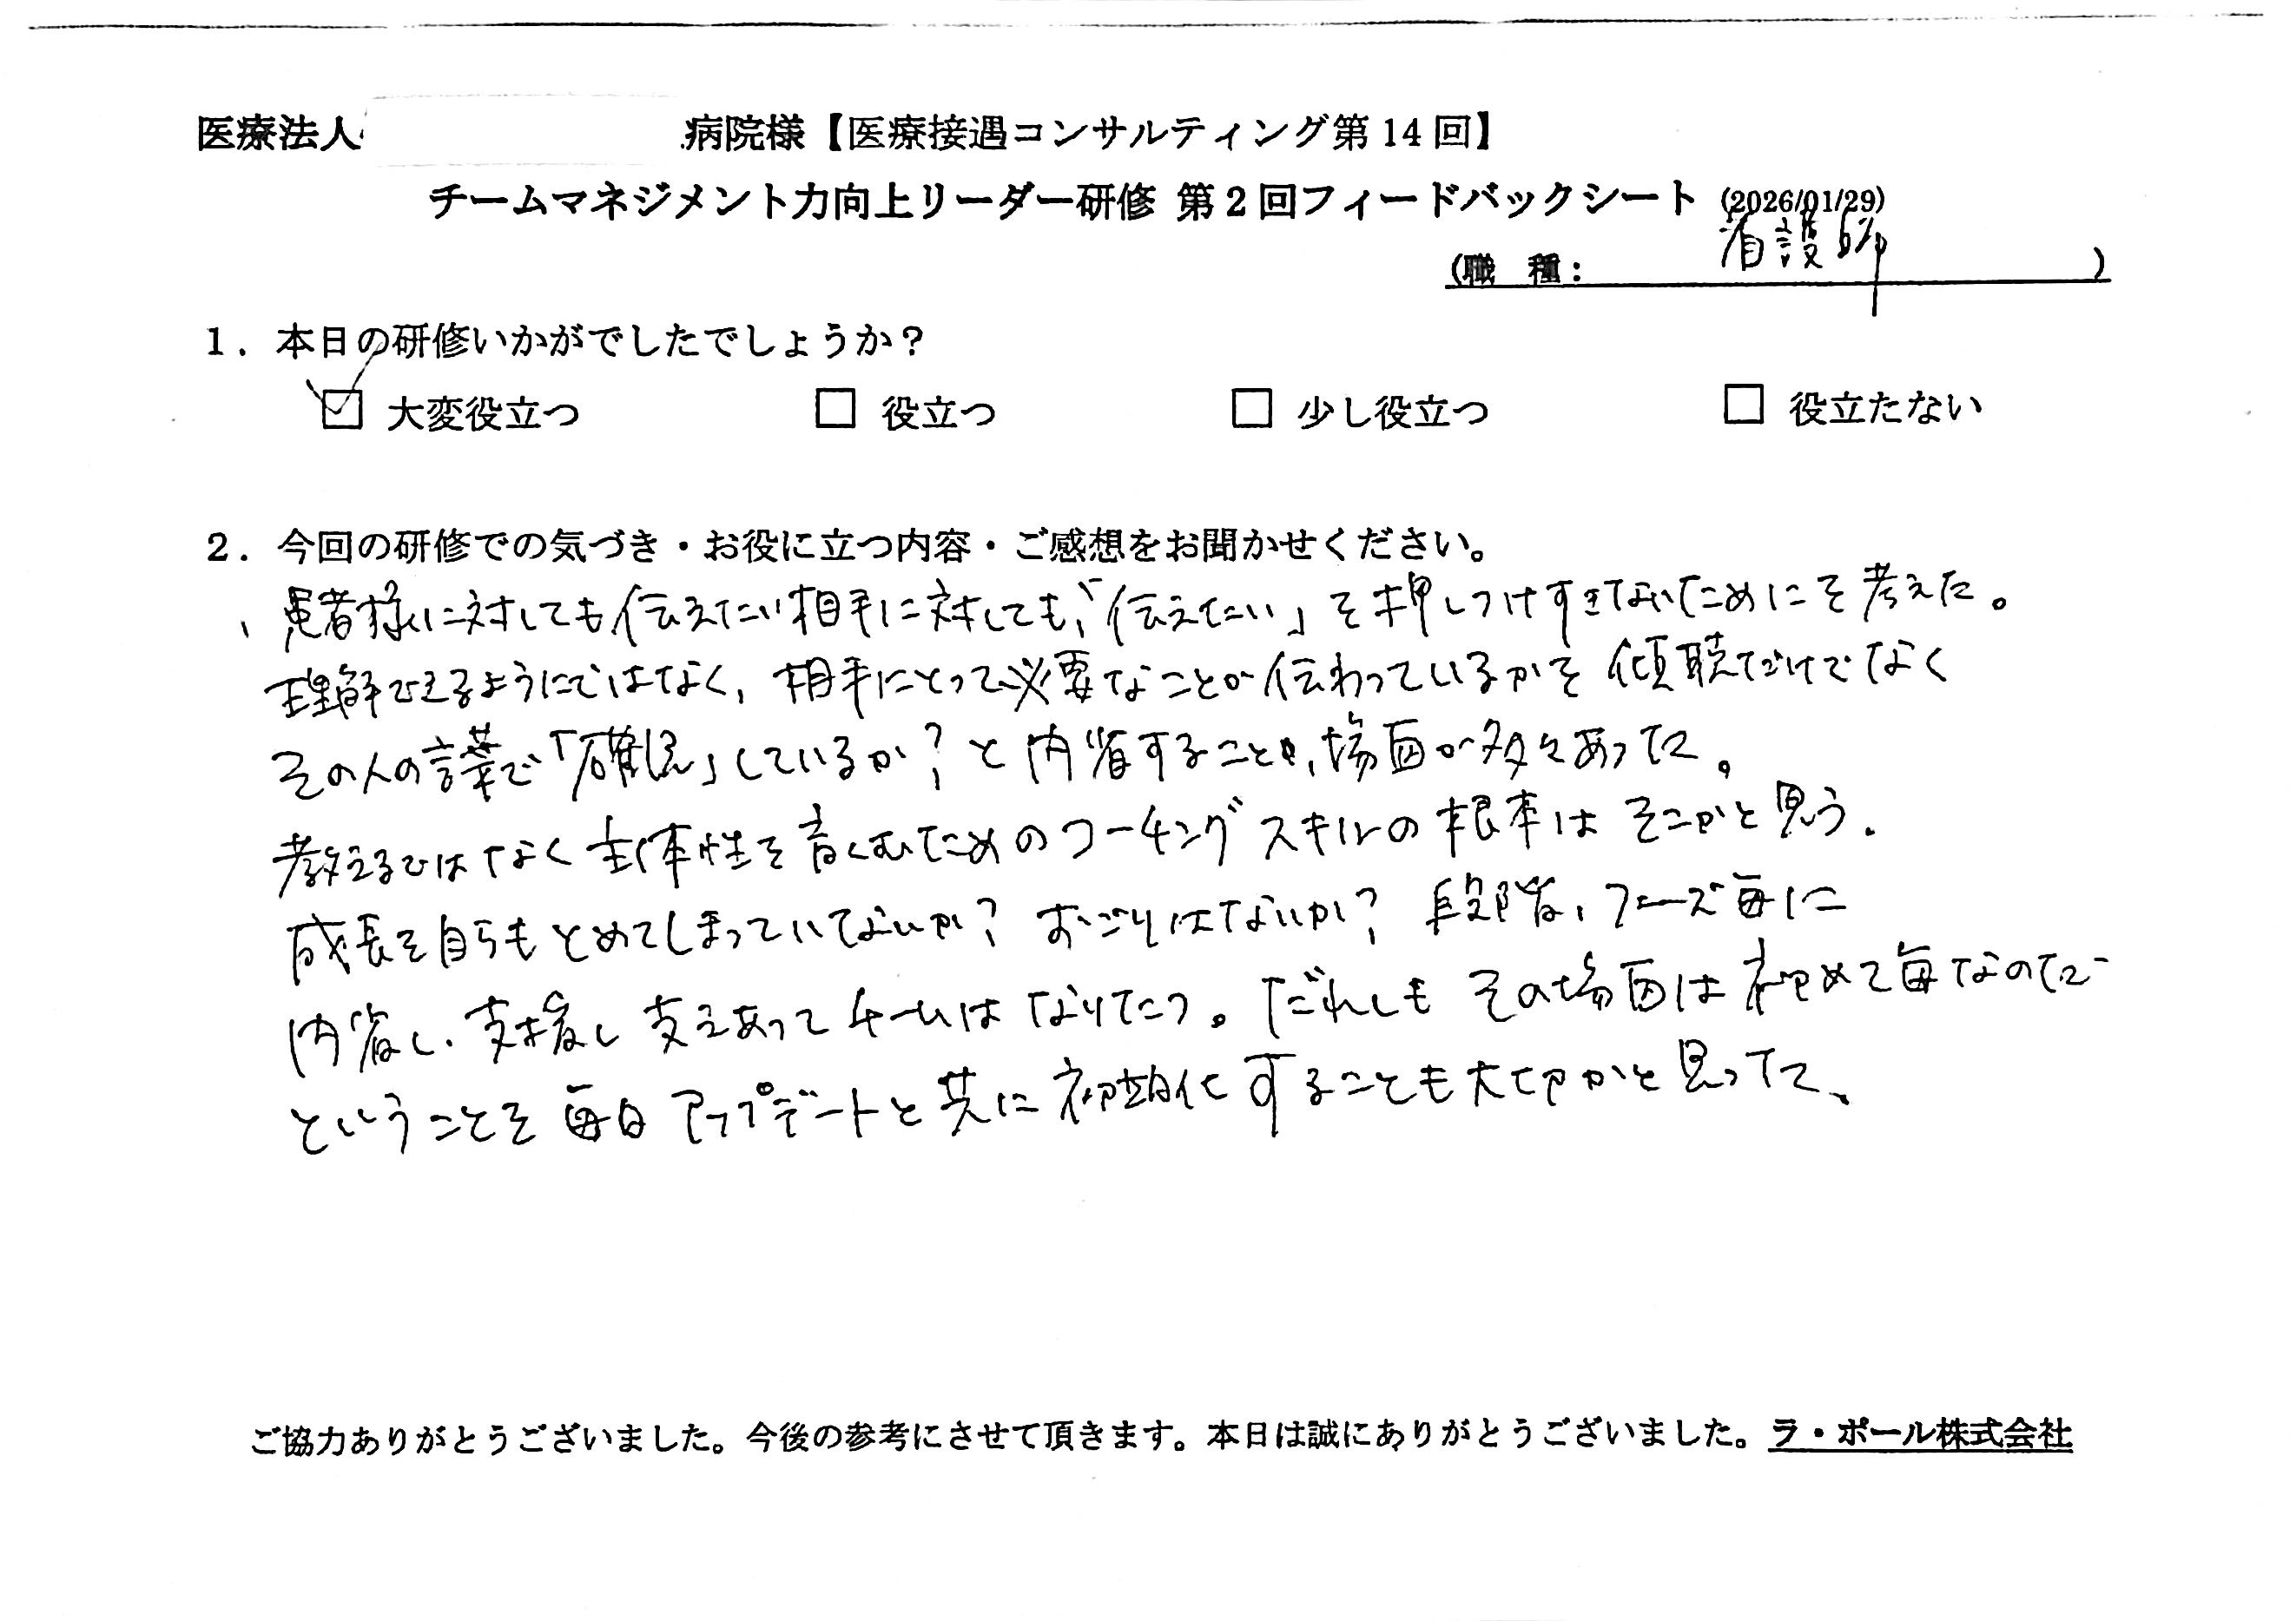 医療法人 病院様【医療接遇コンサルティング第14回】
チームマネジメント力向上リーダー研修 第2回フィードバックシート (2026/01/29)
(職 種: 看護師 )
1. 本日の研修いかがでしたでしょうか?
☑ 大変役立つ □ 役立つ □ 少し役立つ □ 役立たない
2. 今回の研修での気づき・お役に立つ内容・ご感想をお聞かせください。
、患者様に対しても、伝えたい相手に対しても、「伝えたい」を押しつけすぎないためにを考えた。
理解できるようにではなく、相手にとって必要なことが伝わっているかを傾聴だけでなく
その人の言葉で「確認」しているか?と内省することや、場面が多々あった。
教えるではなく主体性を育くむためのコーチングスキルの根本はそこかと思う。
成長を自らもとめてしまっていないか?おごりはないか?段階、フェーズ毎に
内省し、支援し支えあってチームはなりたつ。だれしもその場面は初めて毎なのだ
ということを毎日アップデートと共に初期化することも大切かと思った、
ご協力ありがとうございました。今後の参考にさせて頂きます。本日は誠にありがとうございました。ラ・ポール株式会社